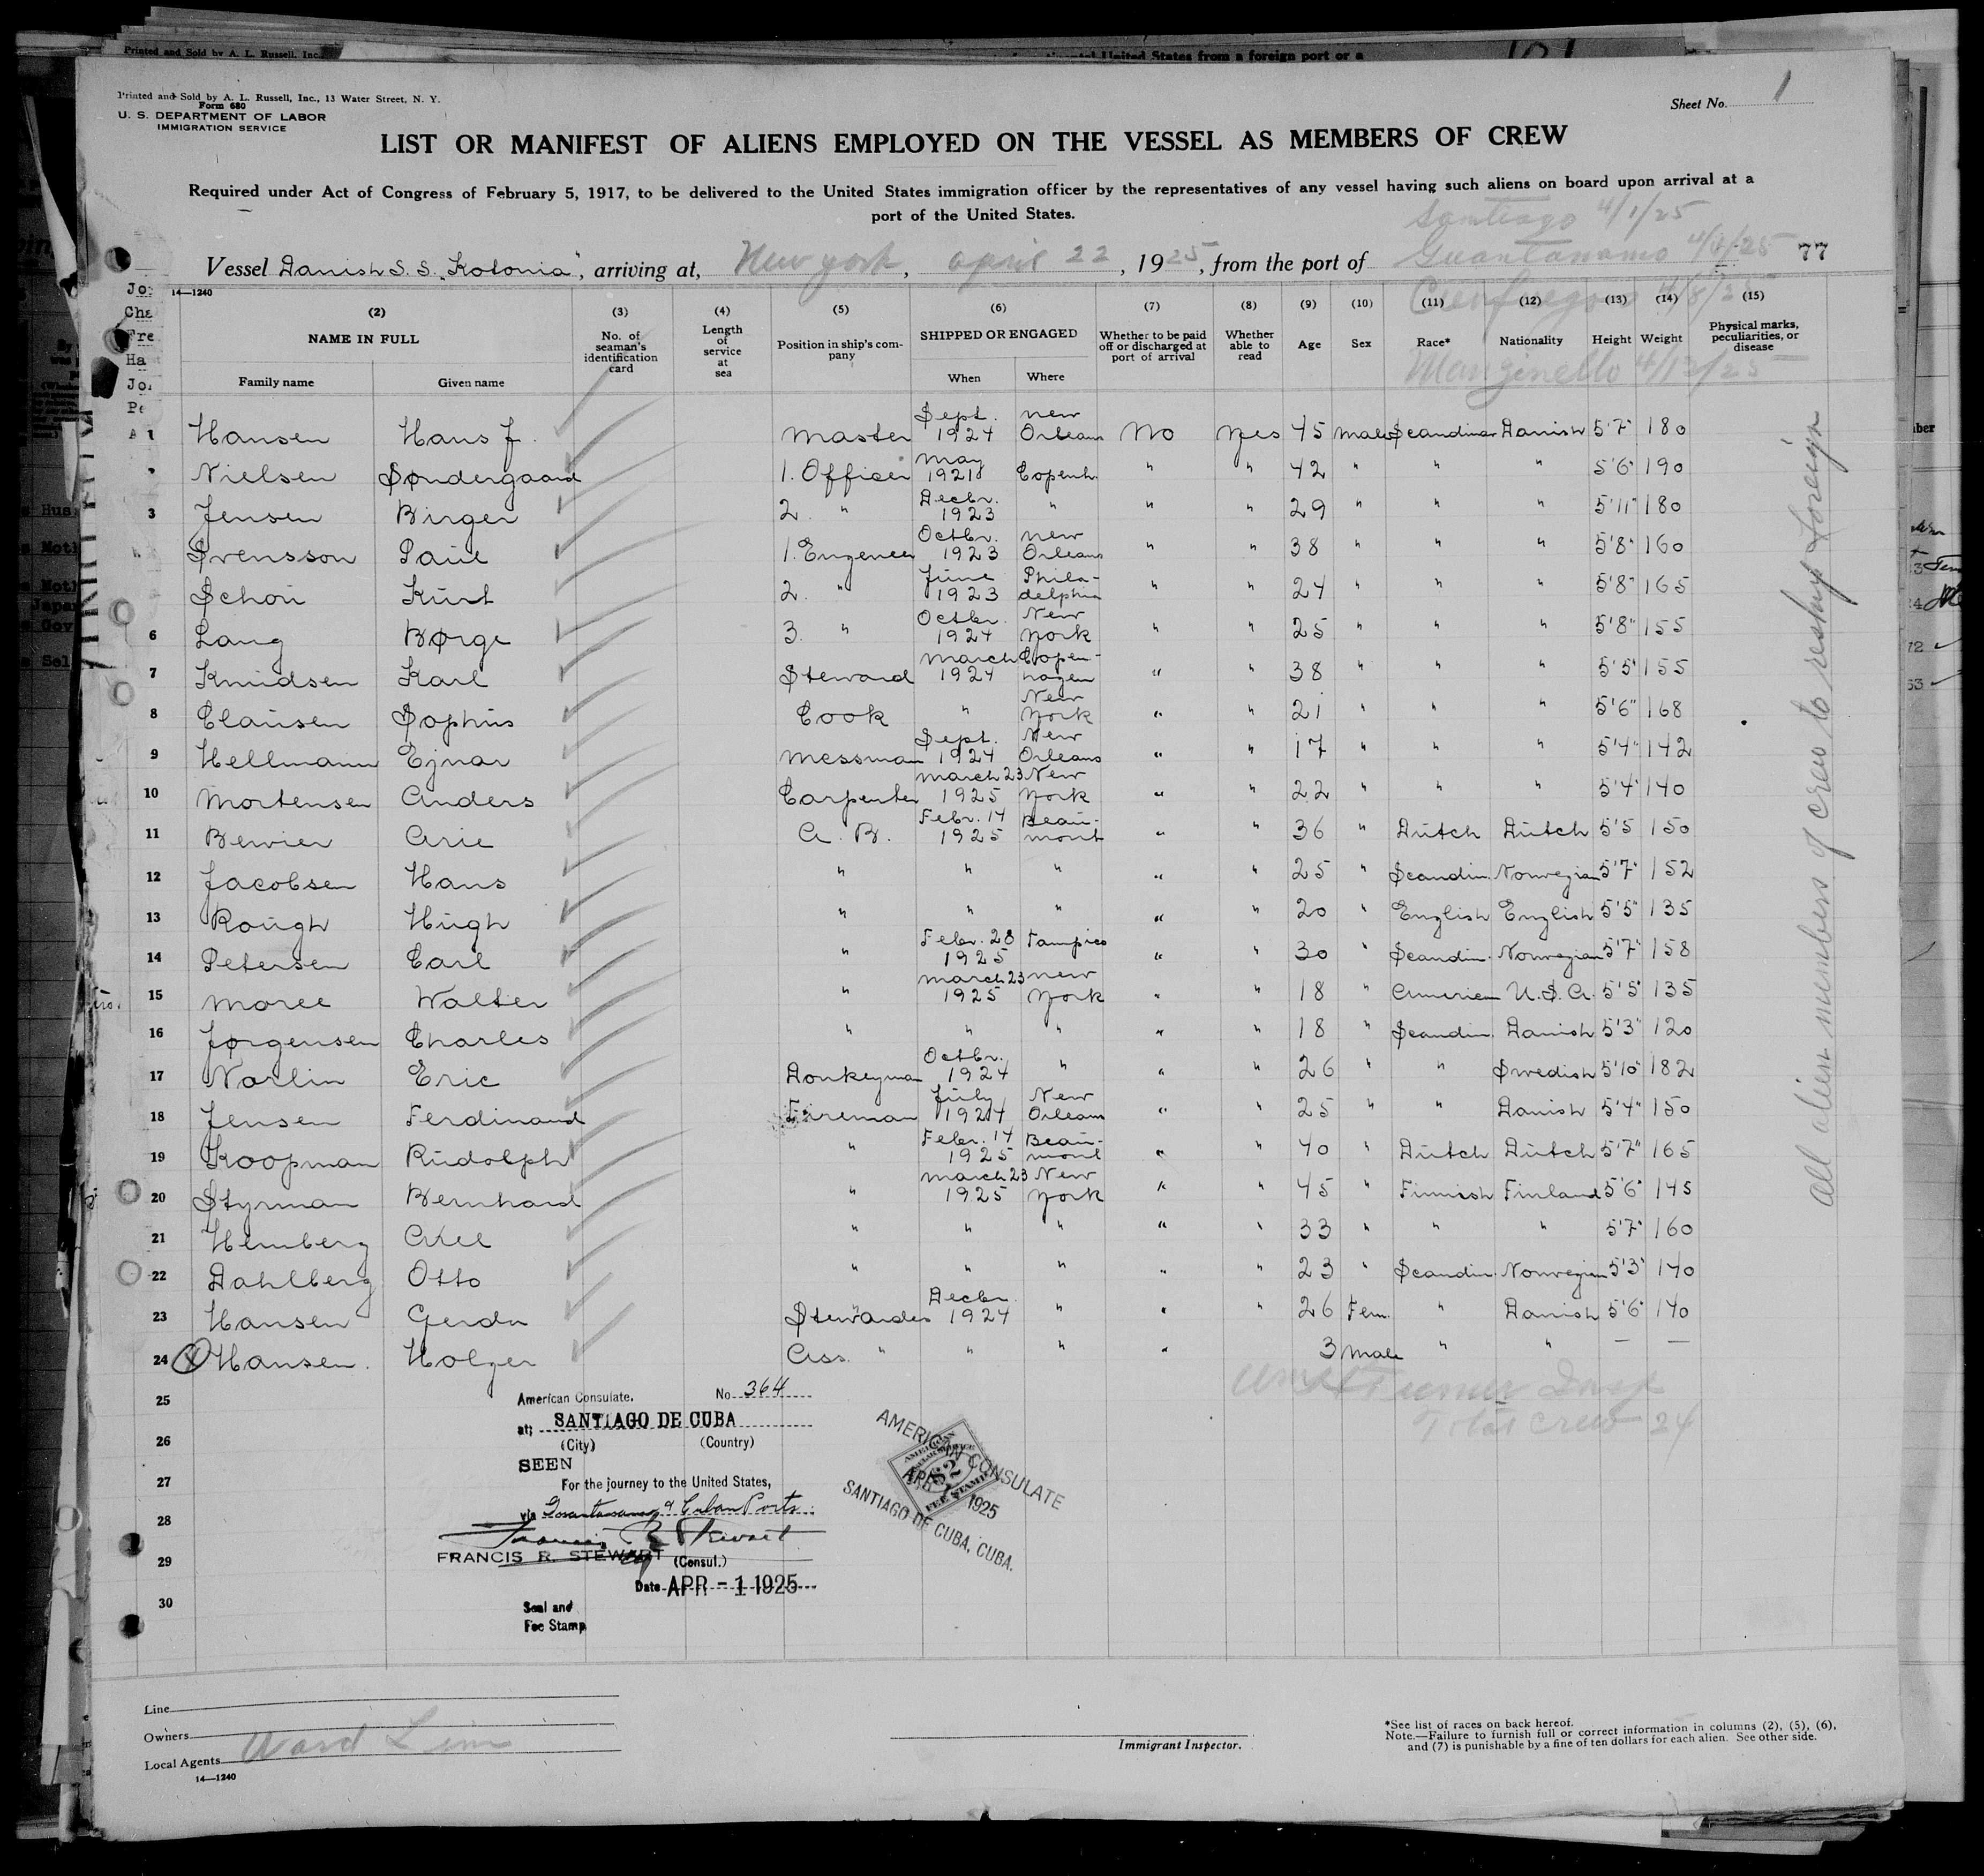 Printed and Sold by A. L. Russell, Inc.
United States from a foreign port or a
Printed and Sold by A. L. Russell, Inc., 13 Water Street, N. Y.
Form 680
U. S. DEPARTMENT OF LABOR
IMMIGRATION SERVICE
Sheet No. 1
LIST OR MANIFEST OF ALIENS EMPLOYED ON THE VESSEL AS MEMBERS OF CREW
Required under Act of Congress of February 5, 1917, to be delivered to the United States immigration officer by the representatives of any vessel having such aliens on board upon arrival at a
port of the United States.
Santiago 4/1/25
Vessel Danish S. S. "Kotonia", arriving at, New york, april 22, 1925, from the port of Guantanamo 77
Cienfuegos 4/8/25
Manzinello 4/13/25
14—1240
(2) (3) (4) (5) (6) (7) (8) (9) (10) (11) (12) (13) (14) (15)
NAME IN FULL
Family name Given name
No. of seaman's identification card
Length of service at sea
Position in ship's company
SHIPPED OR ENGAGED
When Where
Whether to be paid off or discharged at port of arrival
Whether able to read
Age Sex Race* Nationality Height Weight
Physical marks, peculiarities, or disease
1 Hansen Hans J. Master Sept. 1924 New Orleans No Yes 45 male Scandinav Danish 5'7" 180
Nielsen Søndergaard 1. Officer May 1921 Copenh. " " 42 " " " 5'6" 190
3 Jensen Birger 2. " Decbr. 1923 " " " 29 " " " 5'11" 180
Svensson Paul 1. Engeneer Octbr. 1923 New Orleans " " 38 " " " 5'8" 160
Schou Kurt 2. " June 1923 Phila-delphia " " 24 " " " 5'8" 165
6 Lang Børge 3. " Octbr. 1924 New York " " 25 " " " 5'8" 155
7 Knudsen Karl Steward March 1924 Copen-hagen " " 38 " " " 5'5" 155
8 Clausen Sophus Cook " New York " " 21 " " " 5'6" 168
9 Hellmann Ejnar Messman Sept. 1924 New Orleans " " 17 " " " 5'4" 142
10 Mortensen Anders Carpenter March 23 1925 New York " " 22 " " " 5'4" 140
11 Bevier Arie A. B. Febr. 14 1925 Beau-mont " " 36 " Dutch Dutch 5'5 150
12 Jacobsen Hans " " " " " 25 " Scandin. Norwegian 5'7" 152
13 Rough Hugh " " " " " 20 " English English 5'5" 135
14 Petersen Carl " Febr. 28 1925 Tampico " " 30 " Scandin. Norwegian 5'7" 158
15 Moree Walter " March 23 1925 New York " " 18 " American U.S.A. 5'5" 135
16 Jørgensen Charles " " " " " 18 " Scandin. Danish 5'3" 120
17 Norlin Eric Donkeyman Octbr. 1924 " " " 26 " " Swedish 5'10" 182
18 Jensen Ferdinand Fireman July 1924 New Orleans " " 25 " " Danish 5'4" 150
19 Koopman Rudolph " Febr. 14 1925 Beau-mont " " 40 " Dutch Dutch 5'7" 165
20 Styrman Bernhard " March 23 1925 New York " " 45 " Finnish Finland 5'6" 145
21 Hemberg Axel " " " " " 33 " " " 5'7" 160
22 Dahlberg Otto " " " " " 23 " Scandin. Norwegian 5'3" 140
23 Hansen Gerda Stewardes Decbr. 1924 " " " 26 Fem. " Danish 5'6" 140
24 Hansen. Holger Ass. " " " " 3 male " " — —
25
26
27
28
29
30
All alien members of crew to reship foreign
Total crew 24
American Consulate. No 364
at; SANTIAGO DE CUBA
(City) (Country)
SEEN
For the journey to the United States,
via Guantanamo & Cuban Ports
FRANCIS R. STEWART (Consul.)
Date APR - 1 1925
Seal and
Fee Stamp
AMERICAN CONSULATE
APR 1 1925
SANTIAGO DE CUBA, CUBA.
$2
FEE STAMP
Line
Owners
Local Agents Ward Line
14—1240
Immigrant Inspector.
*See list of races on back hereof.
Note.—Failure to furnish full or correct information in columns (2), (5), (6),
and (7) is punishable by a fine of ten dollars for each alien. See other side.